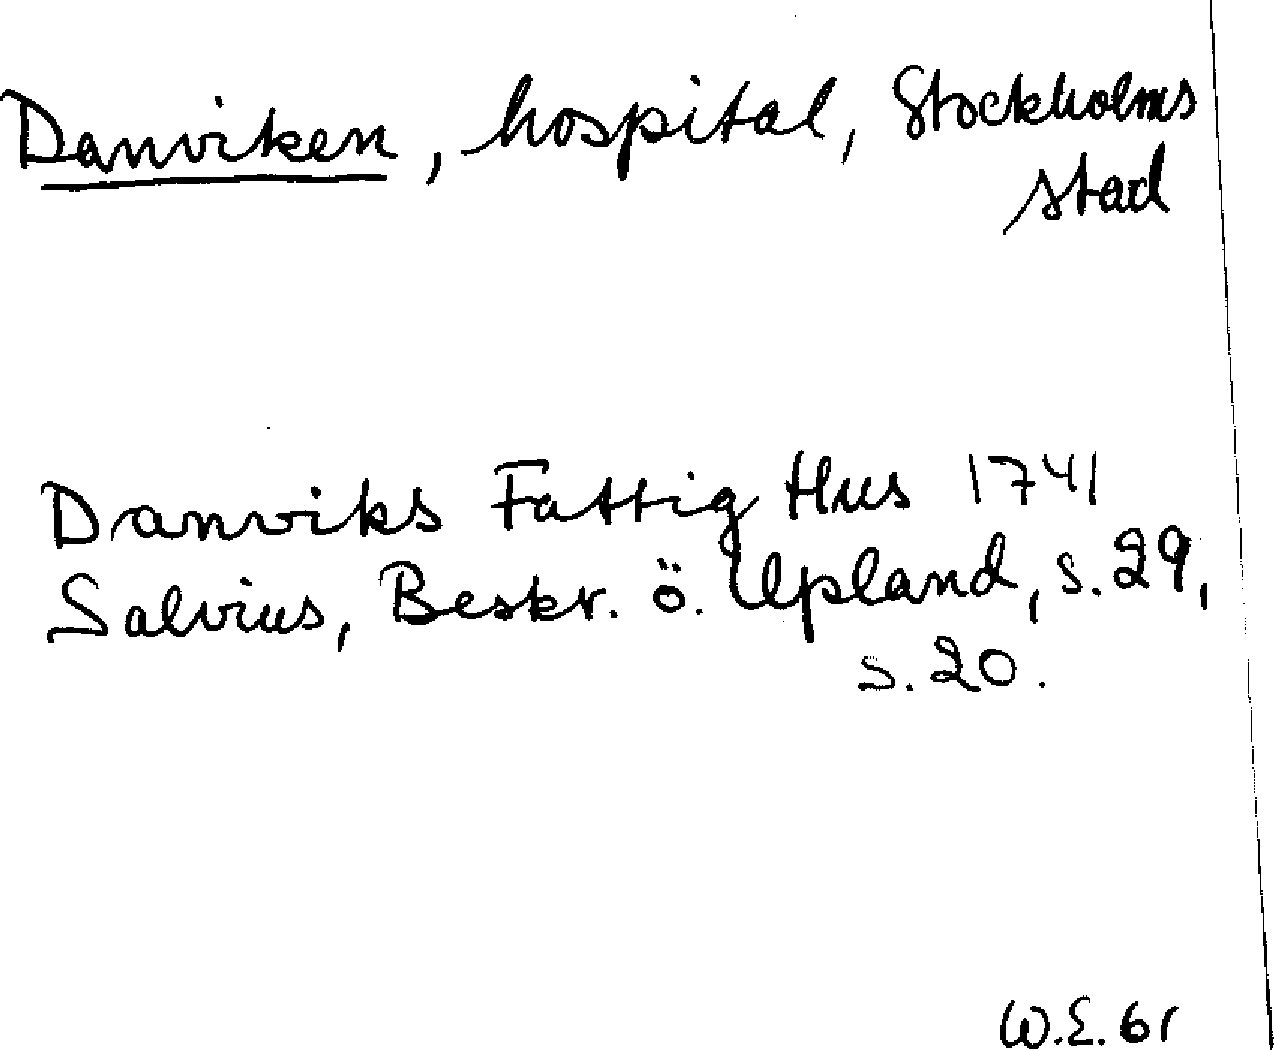 Danviken, hospital, Stockholms
stad
Danviks Fattig Hus 1741
Salvius, Beskr. ö. Upland, s. 29,
s. 20.
W.E. 61